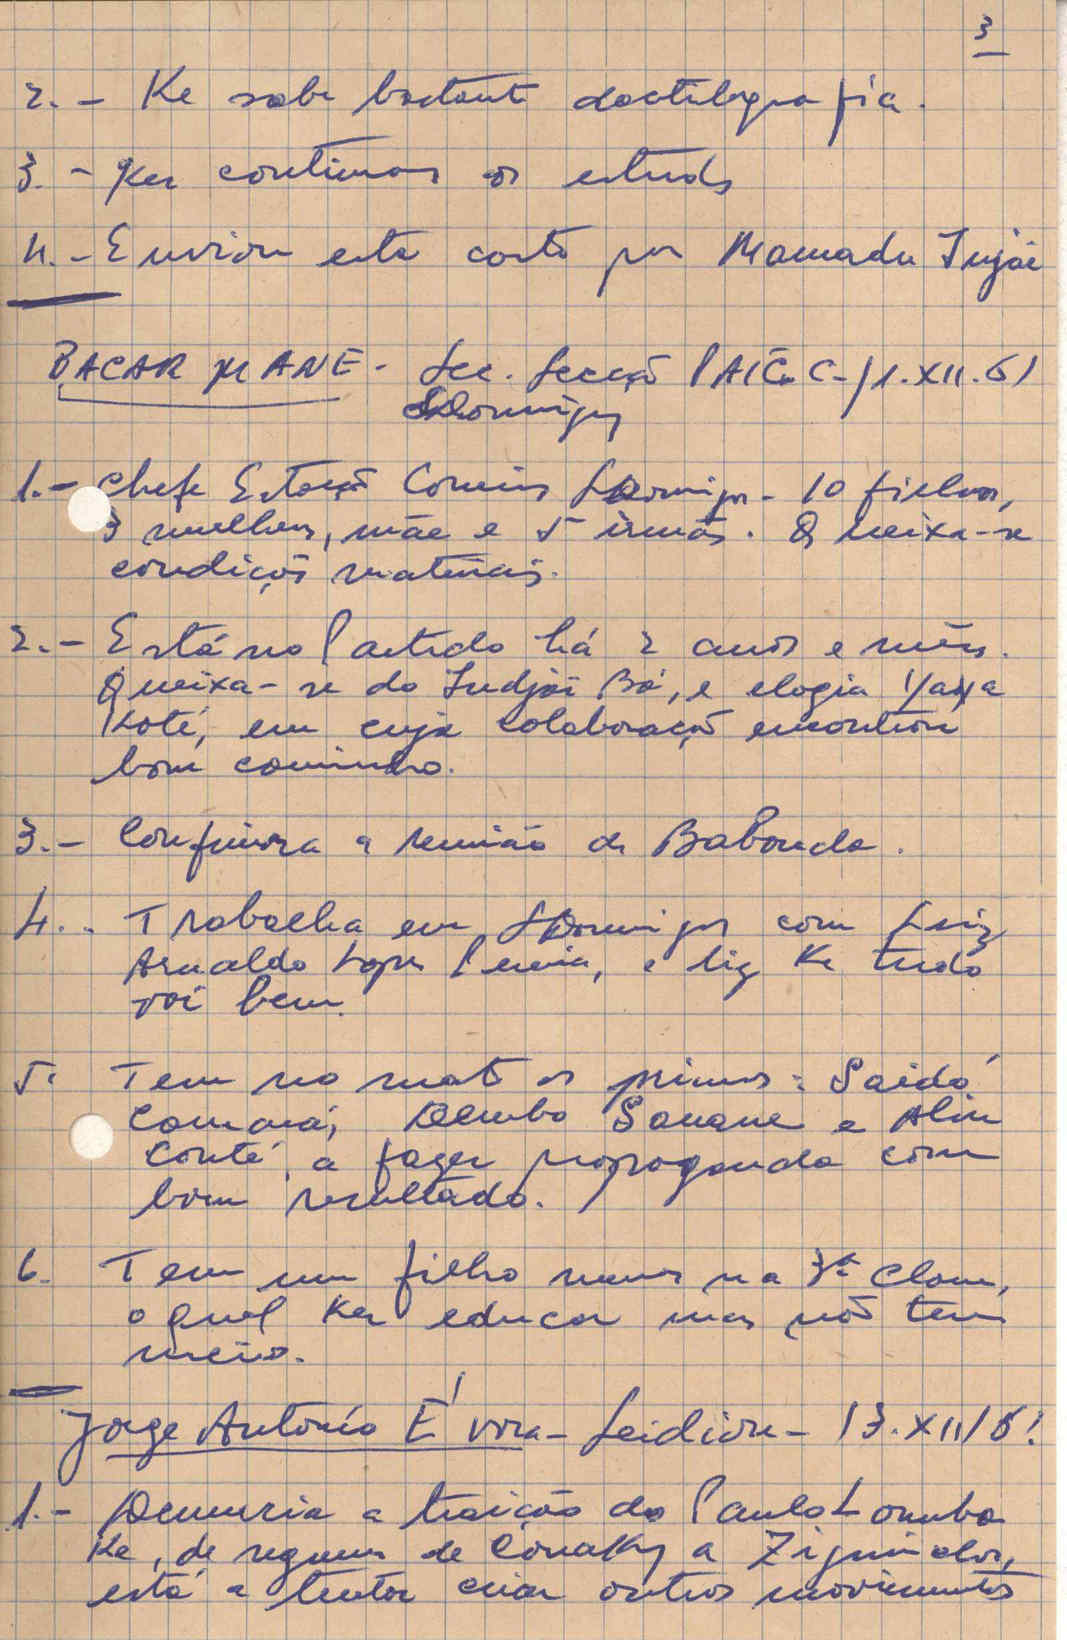 3
2. - Ke sabe bastante dactilografia.
3. - Ker continuar os estudos
4. - Enviou esta carta por Mamadu Injai
BACAR MANE - Sec. Secção PAIGC - 1.XII.61
S Domingos
1. - Chefe Estação Correios S Domingos - 10 filhos,
3 mulheres, mãe e 5 irmãos. Queixa-se
condições materiais.
2. - Está no Partido há 2 anos e mês.
Queixa-se do Indjai Bá, e elogia Yaya
Koté, em cuja colaboração encontrou
bom caminho.
3. - Confirma a reunião de Babonda.
4. - Trabalha em S Domingos com Luiz
Arnaldo Lopes Pereira, e diz Ke tudo
vai bem.
5. Tem no mato os primos: Saidó
Camará, Dembo Sanane e Aliu
Conté, a fazer propaganda com
bom resultado.
6. Tem um filho menor na 3ª classe,
o qual Ker educar mas não tem
meios.
Jorge António Évora - Seidiou - 13.XII/61
1. - Denuncia a traição do Paulo Lomba
Ke, de regresso de Conakry a Ziguinchor,
está a tentar criar outros movimentos